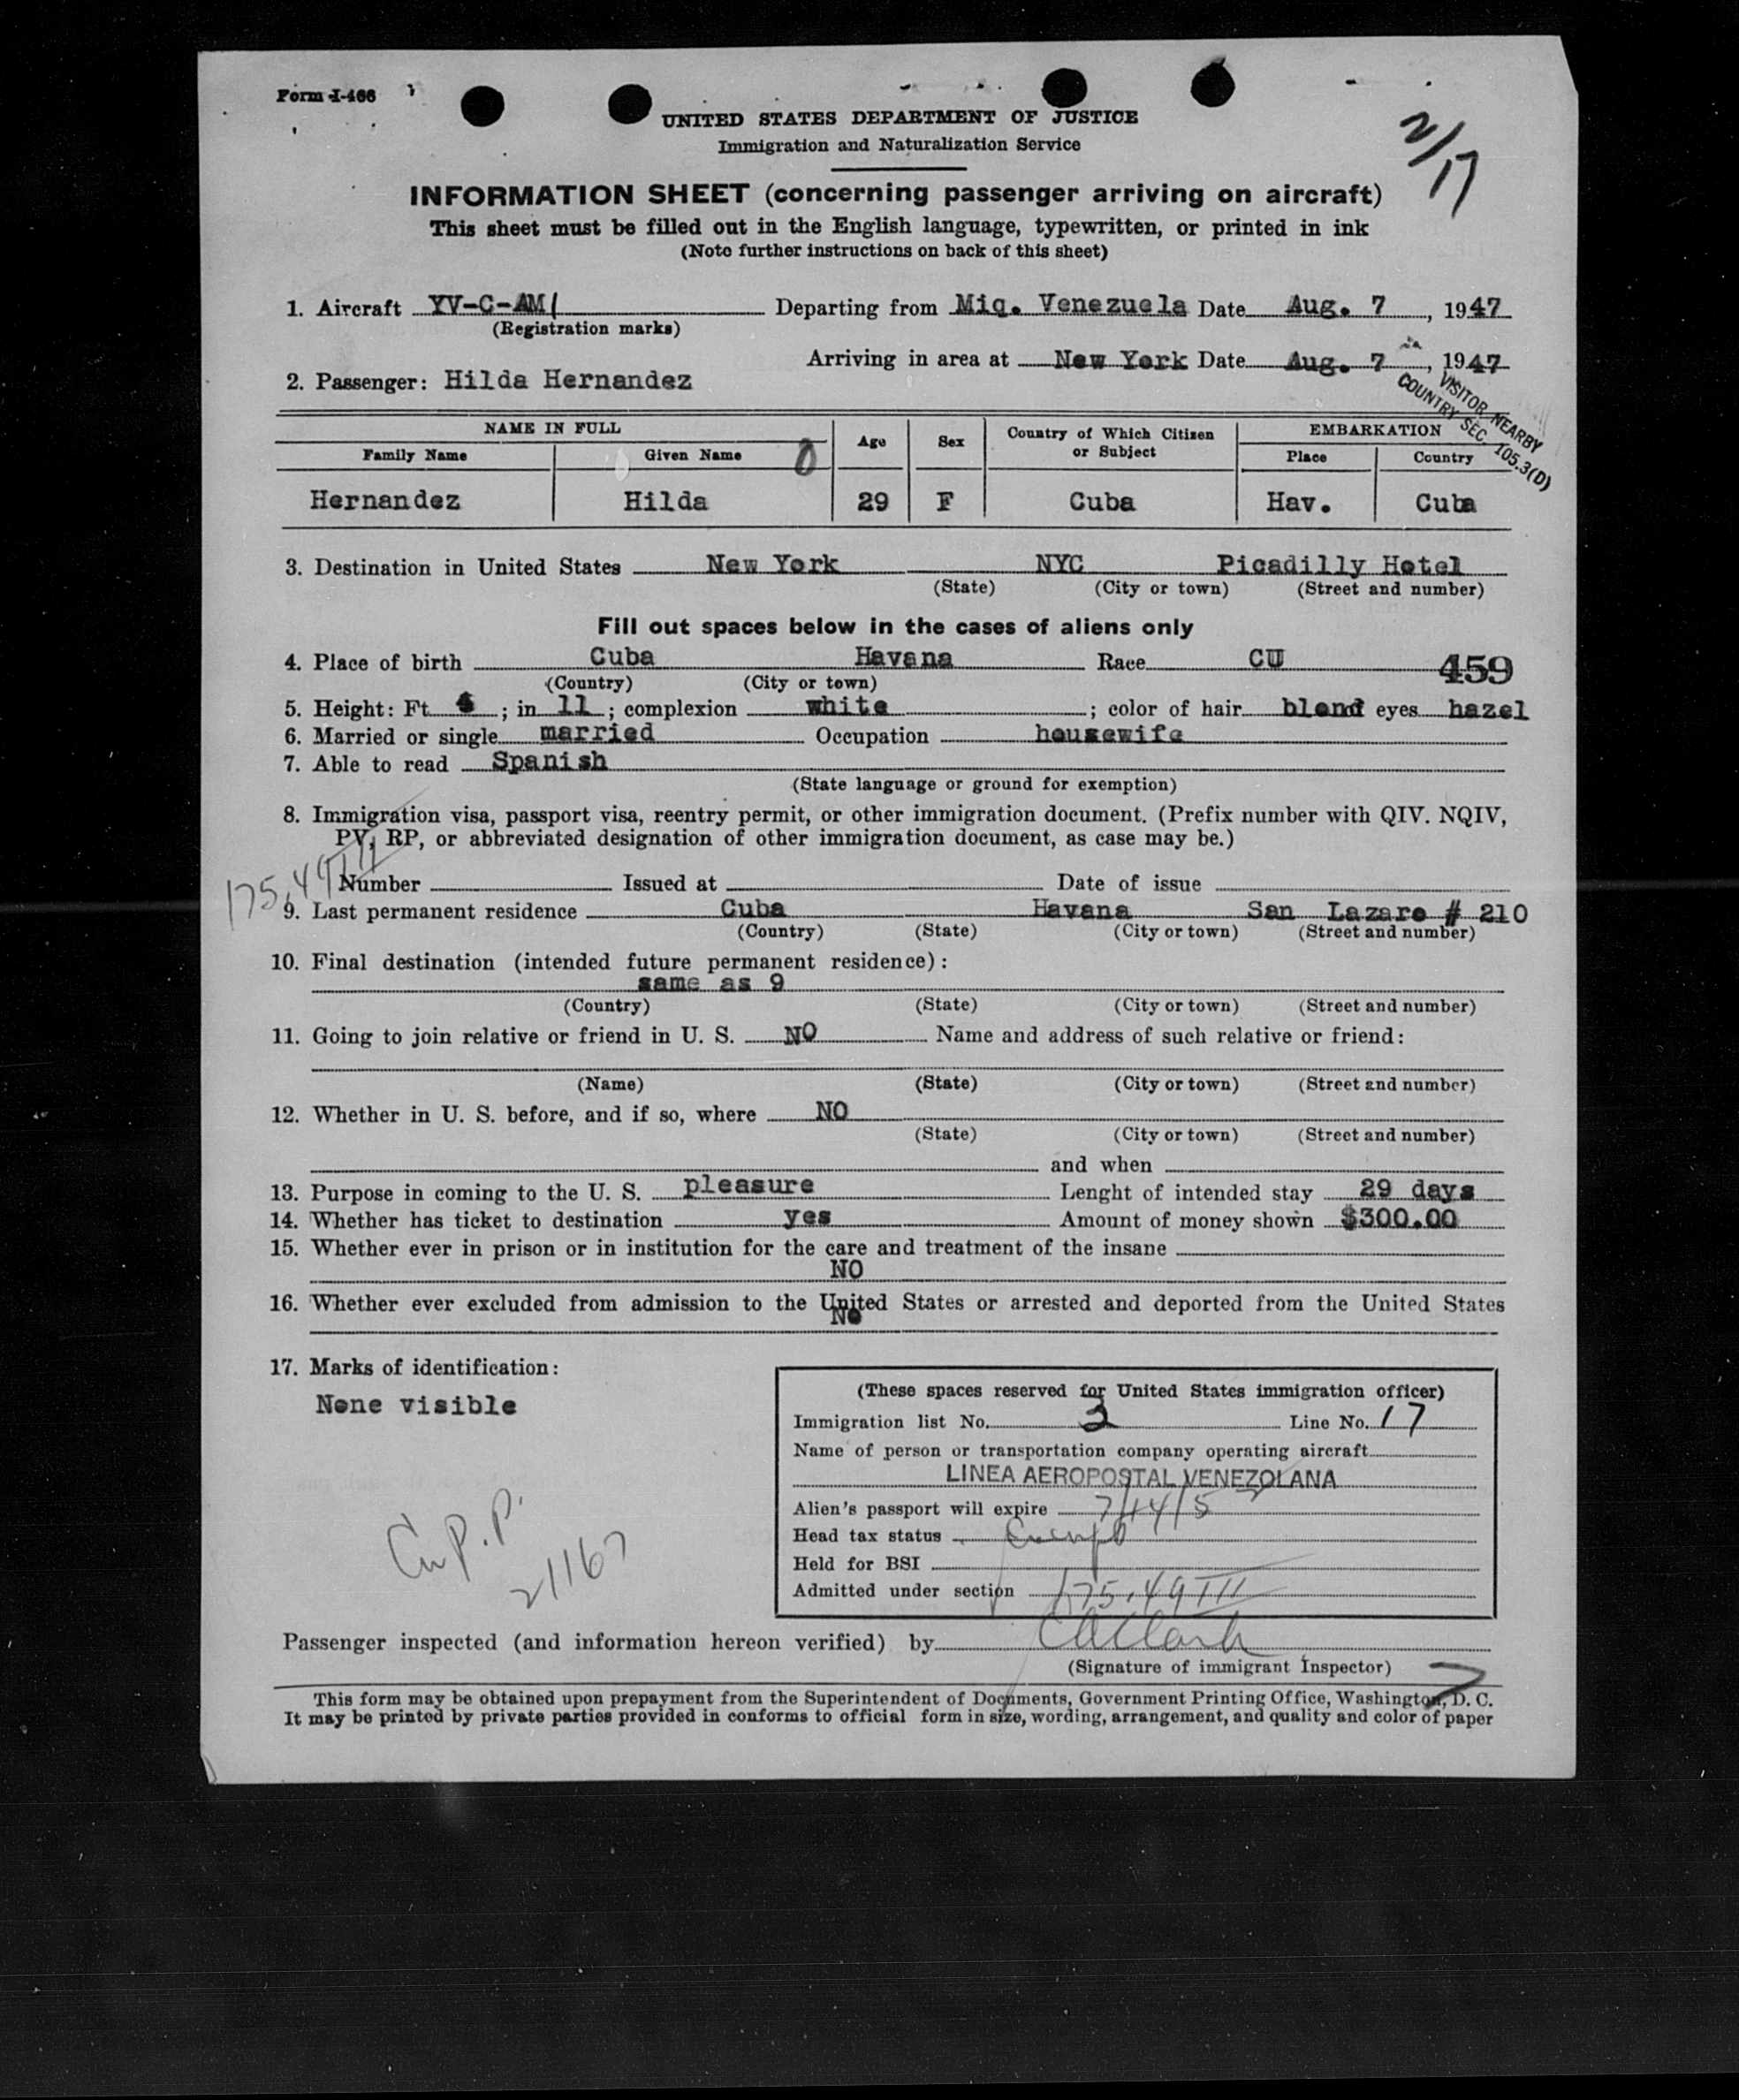 Form I-466
2/17
UNITED STATES DEPARTMENT OF JUSTICE
Immigration and Naturalization Service
INFORMATION SHEET (concerning passenger arriving on aircraft)
This sheet must be filled out in the English language, typewritten, or printed in ink
(Note further instructions on back of this sheet)
1. Aircraft YV-C-AM( Departing from Miq. Venezuela Date Aug. 7, 1947
(Registration marks)
Arriving in area at New York Date Aug. 7, 1947
2. Passenger: Hilda Hernandez
VISITOR NEARBY
COUNTRY SEC. 105.3(D)
NAME IN FULL Age Sex Country of Which Citizen or Subject EMBARKATION
Family Name Given Name Place Country
Hernandez Hilda 29 F Cuba Hav. Cuba
3. Destination in United States New York NYC Picadilly Hotel
(State) (City or town) (Street and number)
Fill out spaces below in the cases of aliens only
4. Place of birth Cuba Havana Race CU 459
(Country) (City or town)
5. Height: Ft ; in 11; complexion white; color of hair blond eyes hazel
6. Married or single married Occupation housewife
7. Able to read Spanish
(State language or ground for exemption)
8. Immigration visa, passport visa, reentry permit, or other immigration document. (Prefix number with QIV. NQIV,
PV, RP, or abbreviated designation of other immigration document, as case may be.)
175.49 III
Number Issued at Date of issue
9. Last permanent residence Cuba Havana San Lazaro # 210
(Country) (State) (City or town) (Street and number)
10. Final destination (intended future permanent residence):
same as 9
(Country) (State) (City or town) (Street and number)
11. Going to join relative or friend in U. S. NO Name and address of such relative or friend:
(Name) (State) (City or town) (Street and number)
12. Whether in U. S. before, and if so, where NO
(State) (City or town) (Street and number)
and when
13. Purpose in coming to the U. S. pleasure Lenght of intended stay 29 days
14. Whether has ticket to destination yes Amount of money shown $300.00
15. Whether ever in prison or in institution for the care and treatment of the insane
NO
16. Whether ever excluded from admission to the United States or arrested and deported from the United States
No
17. Marks of identification:
None visible
(These spaces reserved for United States immigration officer)
Immigration list No. 3 Line No. 17
Name of person or transportation company operating aircraft
LINEA AEROPOSTAL VENEZOLANA
Alien's passport will expire 7/14/5
Head tax status Exempt
Held for BSI
Admitted under section 175.49 III
Cu P.P.
21167
Passenger inspected (and information hereon verified) by CAClark
(Signature of immigrant Inspector)
This form may be obtained upon prepayment from the Superintendent of Documents, Government Printing Office, Washington, D. C.
It may be printed by private parties provided in conforms to official form in size, wording, arrangement, and quality and color of paper